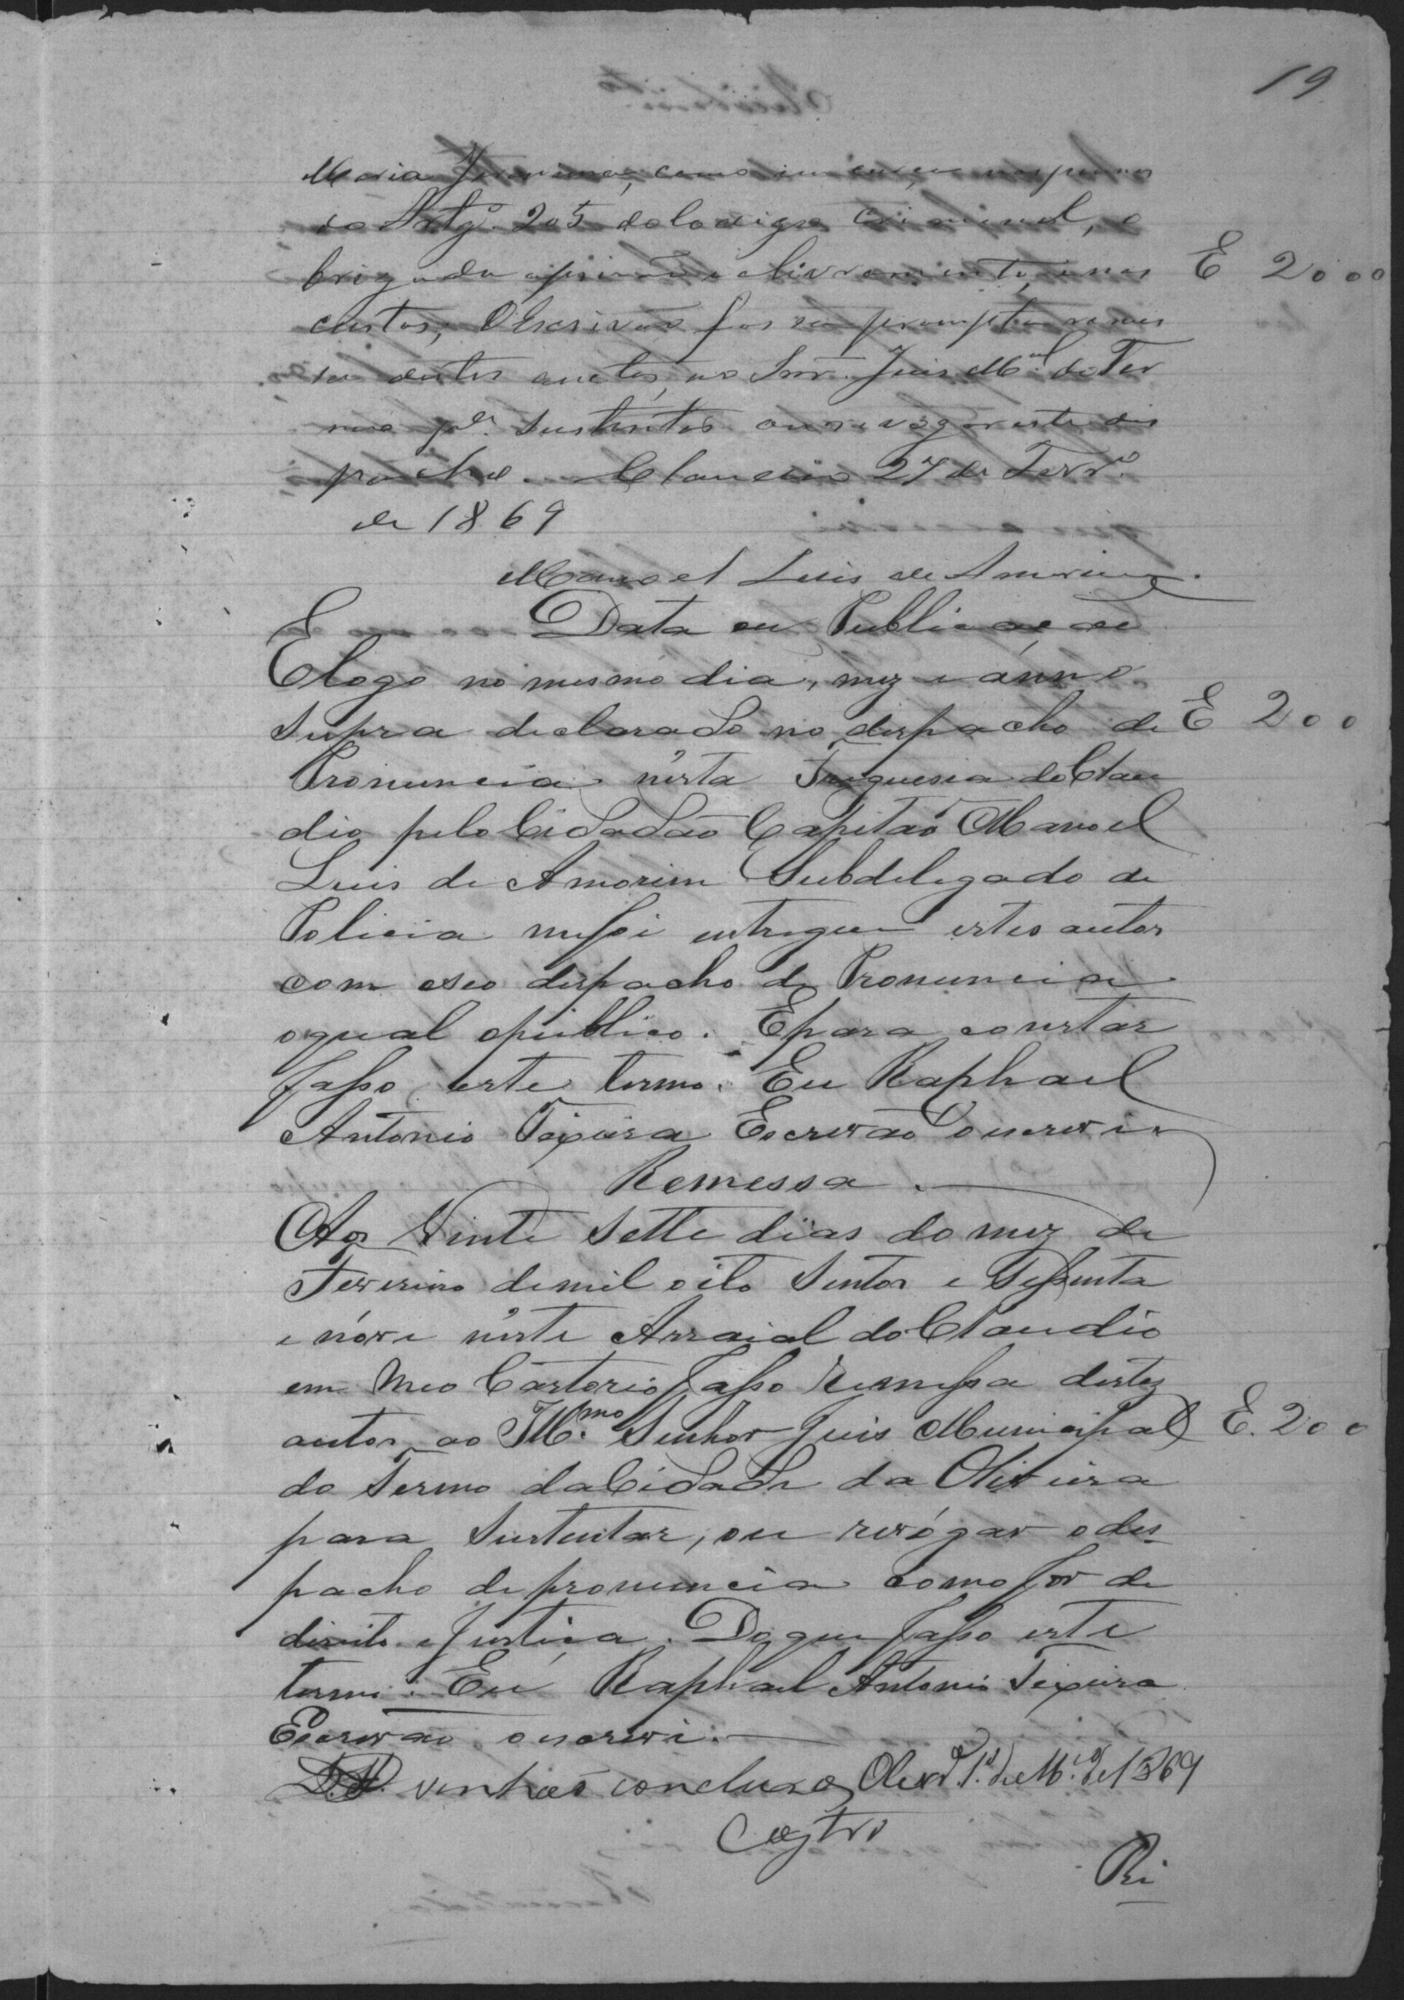 19
Maria Jeronima, como incursa nas penas
do Artgº. 205 do Codigo Criminal, o
brigada aprisão e livramento, e nas E 2000
custas, O Escrivão fas a prompta remes
sa destes auctos, ao Snr. Juis Mal. do Ter
mo pª. sustentar ou revogar este dis
pacho. Claudio 27 de Fevrº.
de 1869
Manoel Luis de Amorim
Data eu Publicacão
E logo no mesmo dia, mez e ánno
supra declarado no dispacho de E 200
Pronuncia nésta Freguesia do Clau
dio pelo Cidadão Capitão Manoel
Luis de Amorim Subdelegado de
Policia mefoi entregue estes autos
com oseo dispacho de Pronuncia
oqual opúblico. Epara constar
fasso este termo. Eu Raphael
Antonio Teixeira Escrivão oescrevi
Remessa
Aos Vinte Sette dias do mez de
Fevereiro demil oito Sentos e Sessenta
e nóve néste Arraial do Claudio
em Meo Cartorio fasso remessa destes
autos ao Illmo. Senhor Juis Municipal E. 200
do Termo daCidade da Oliveira
para Sustentar, ou revógar odes
pacho depronuncia como for de
direito e Justiça. Do que fasso este
termo. Eu Raphael Antonio Teixeira
Escrivão oescrevi.
venhão conclusos, Olivrª 1º de Mço. de 1869
Castro
Re